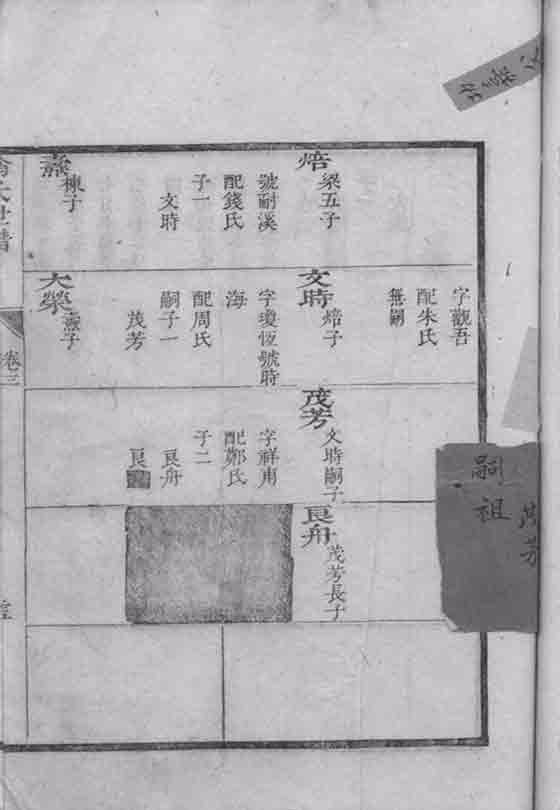 焙
梁五子
號耐溪
配錢氏
子一
文時
燾
棟子
字觀吾
配朱氏
無嗣
文時
焙子
字瓊恆號時
海
配周氏
嗣子一
茂芳
大榮
燾子
茂芳
文時嗣子
字祥甫
配鄭氏
子二
良舟
良
良舟
茂芳長子
嗣祖
茂芳
氏世譜
卷三